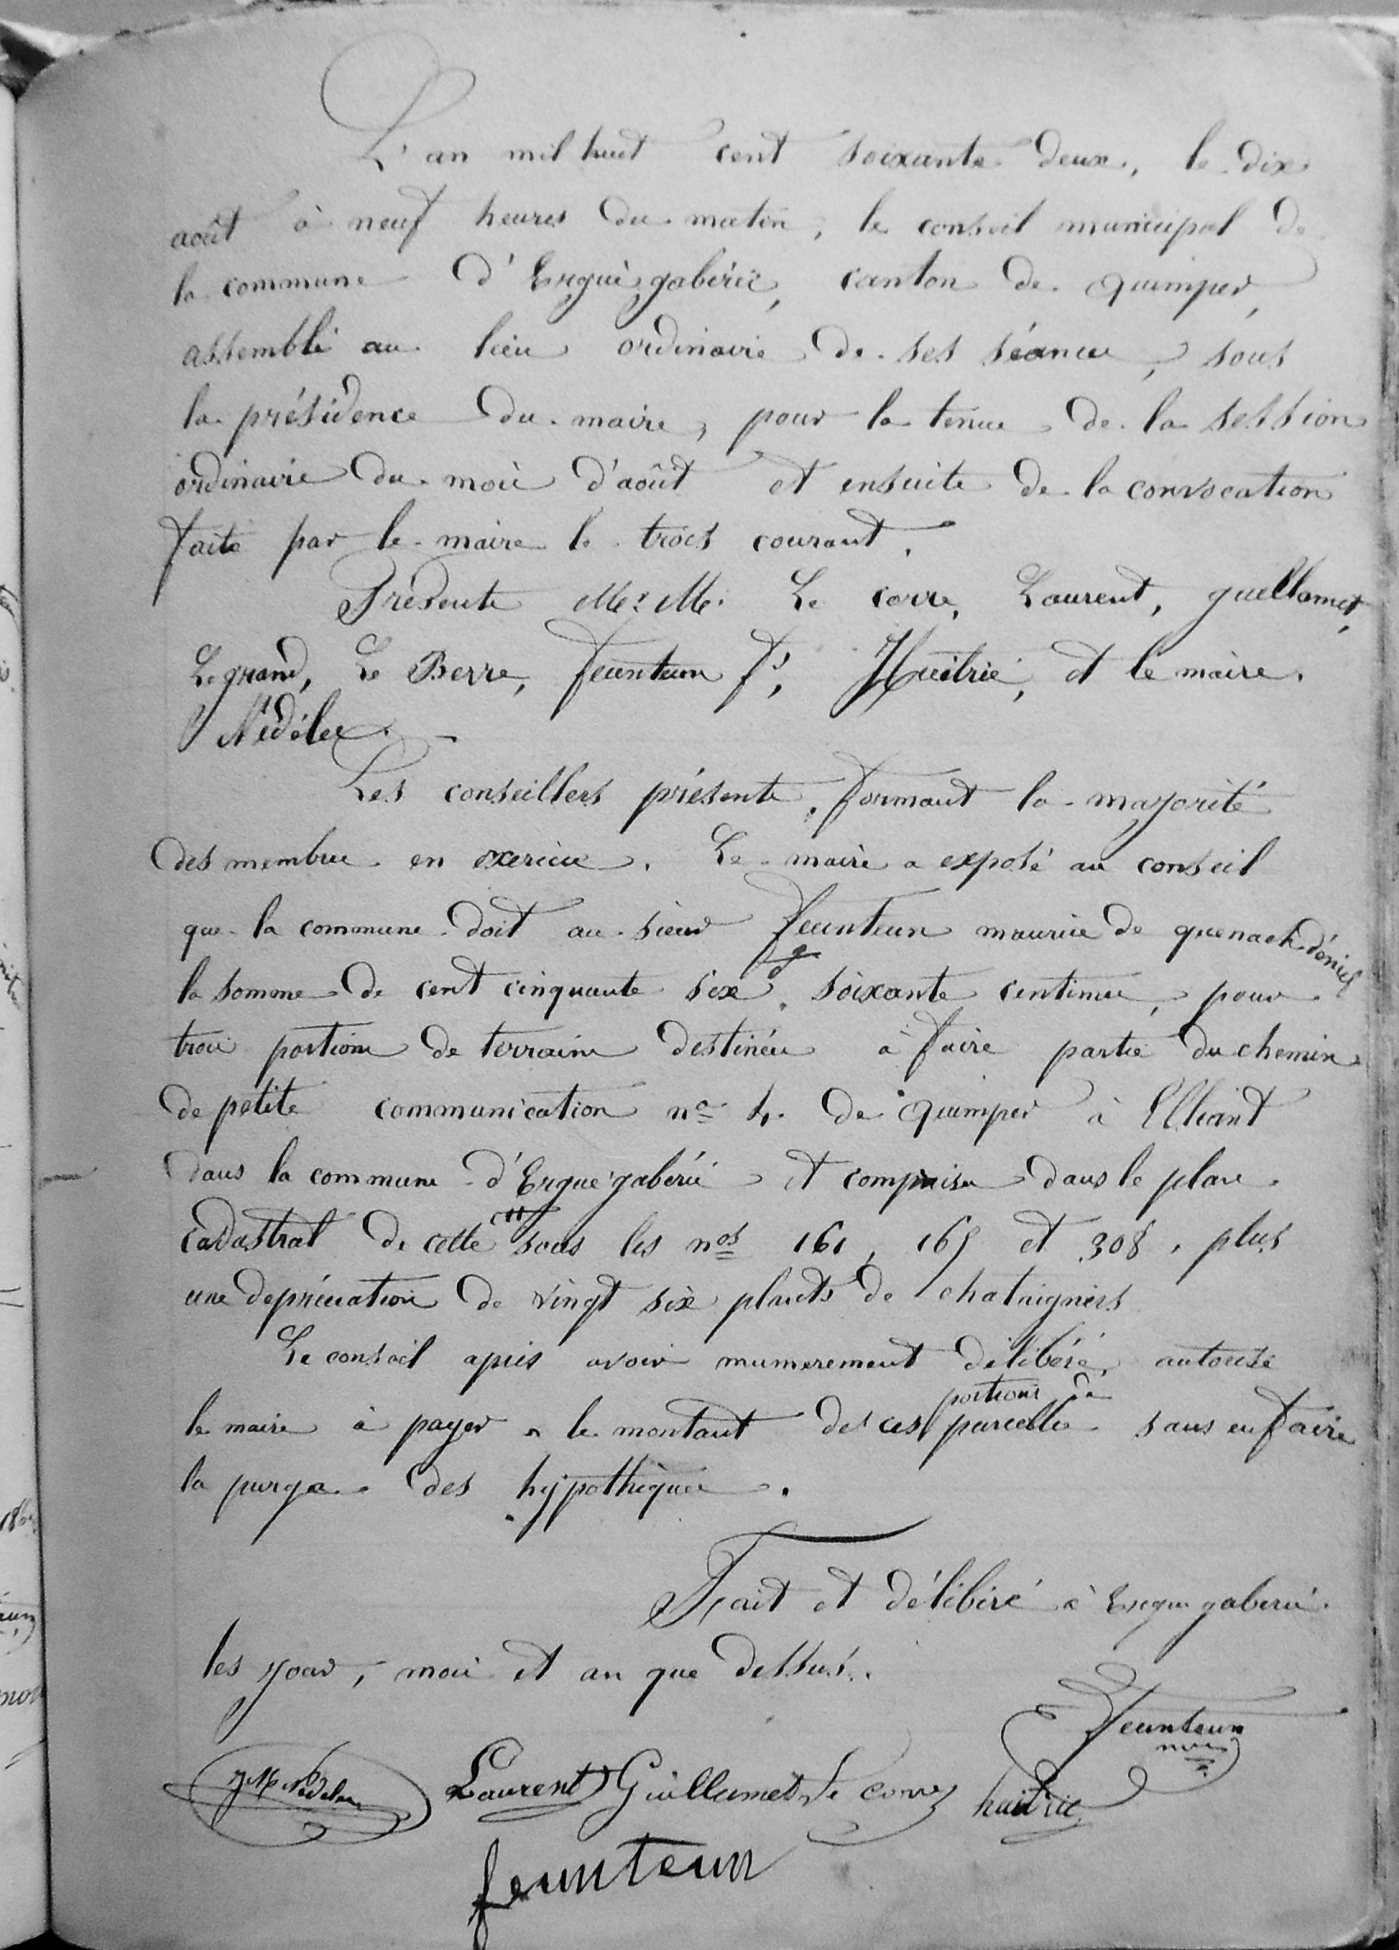 L'an mil huit cent soixante deux, le dix
août à neuf heures du matin, le conseil municipal de
la commune d'Ergué gabéric, canton de quimper,
assemblé au lieu ordinaire de ses séances, sous
la présidence du maire, pour la tenue de la session
ordinaire du mois d'août et ensuite de la convocation
faite par le maire le trois courant.
Présents Mr. M. Le corre, Laurent, guellamet,
Legrand, Le Berre, feunteun fs, Huitric, et le maire.
Nédélec.
Les conseillers présents, formant la majorité
des membres en exercice. Le maire a exposé au conseil
que la commune doit au sieur feunteun maurice de quenach déniel
la somme de cent cinquante six f. soixante centimes, pour
trois portions de terrains destinées à faire partie du chemin
de petite communication no 4. de quimper à Elliant
dans la commune d'Ergué gabéric et comprises dans le plan
cadastral de cette sous les nos 161, 165 et 308, plus
une dépréciation de vingt six plants de chataigniers
Le conseil après avoir mumerement délibéré, autorise
portions de
le maire à payer le montant de ces parcelles sans en faire
la purge des hypothèques.
Fait et délibéré à Ergue gaberic
les jour, mois et an que dessus.
Feunteun
Laurent Guillamet Le corre huitric
feunteun